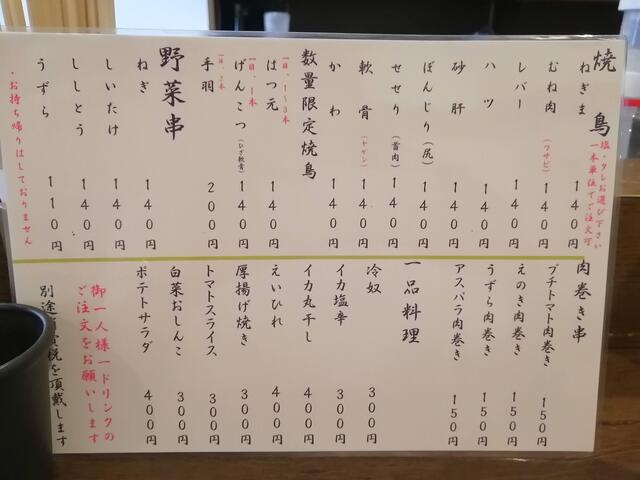 焼鳥
塩・タレお選び下さい
一本単位でご注文可
ねぎま 140円
むね肉(ワサビ) 140円
レバー 140円
ハツ 140円
砂肝 140円
ぼんじり(尻) 140円
せせり(首肉) 140円
軟骨(ヤゲン) 140円
かわ 140円
数量限定焼鳥
はつ元 140円
一日、1~3本
げんこつ(ひざ軟骨) 140円
一日、1本
手羽 200円
一日、2本
野菜串
ねぎ 140円
しいたけ 140円
ししとう 140円
うずら 110円
・お持ち帰りはしておりません
肉巻き串
プチトマト肉巻き 150円
えのき肉巻き 150円
うずら肉巻き 150円
アスパラ肉巻き 150円
一品料理
冷奴 300円
イカ塩辛 300円
イカ丸干し 400円
えいひれ 400円
厚揚げ焼き 300円
トマトスライス 300円
白菜おしんこ 300円
ポテトサラダ 400円
御一人様一ドリンクの
ご注文をお願いします
別途 費税を頂戴します